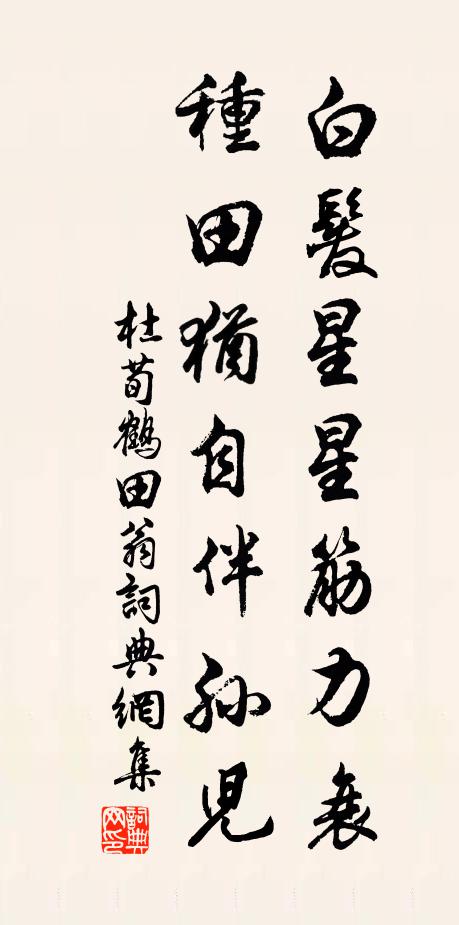 白髮星星筋力衰
種田猶自伴孫児
杜荀鶴田翁詞典網集
詞典
网印